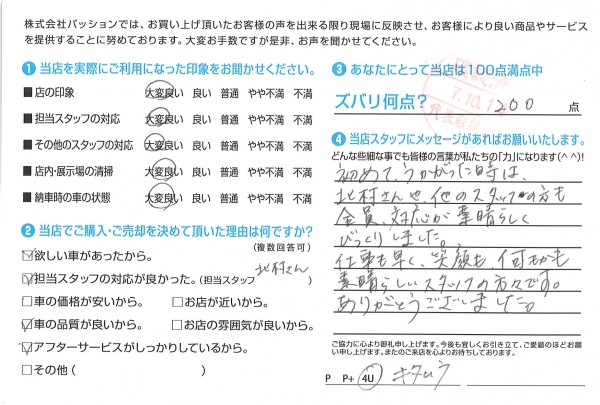 株式会社パッションでは、お買い上げ頂いたお客様の声を出来る限り現場に反映させ、お客様により良い商品やサービス
を提供することに努めております。大変お手数ですが是非、お声を聞かせてください。
1 当店を実際にご利用になった印象をお聞かせください。
■店の印象 大変良い 良い 普通 やや不満 不満
■担当スタッフの対応 大変良い 良い 普通 やや不満 不満
■その他のスタッフの対応 大変良い 良い 普通 やや不満 不満
■店内・展示場の清掃 大変良い 良い 普通 やや不満 不満
■納車時の車の状態 大変良い 良い 普通 やや不満 不満
2 当店でご購入・ご売却を決めて頂いた理由は何ですか?
(複数回答可)
☑欲しい車があったから。
☑担当スタッフの対応が良かった。(担当スタッフ 北村さん )
□車の価格が安いから。 □お店が近いから。
☑車の品質が良いから。 □お店の雰囲気が良いから。
☑アフターサービスがしっかりしているから。
□その他 ( )
3 あなたにとって当店は100点満点中
ズバリ何点? 200 点
7.10.1
代表
4 当店スタッフにメッセージがあればお願いいたします。
どんな些細な事でも皆様の言葉が私たちの「力」になります(^ ^)!
初めて、うかがった時は、
北村さんや、他のスタッフの方も
全員、対応が素晴らしく
びっくりしました。
仕事も早く、笑顔も、何もかも
素晴らしいスタッフの方々です。
ありがとうございました
ご協力に心より御礼申し上げます。今後も宜しくお引き立て、ご愛顧のほどお願
い申し上げます。またのご来店を心よりお待ちしております。
P P+ 4U キタムラ